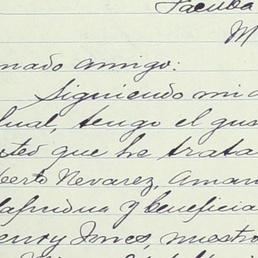 Tacuba
M
mado amigo:
Siguiendo mi c
ual, tengo el gus
usted que he trata
berto Nevarez, Aman
y beneficia
enry Jones, nuestro